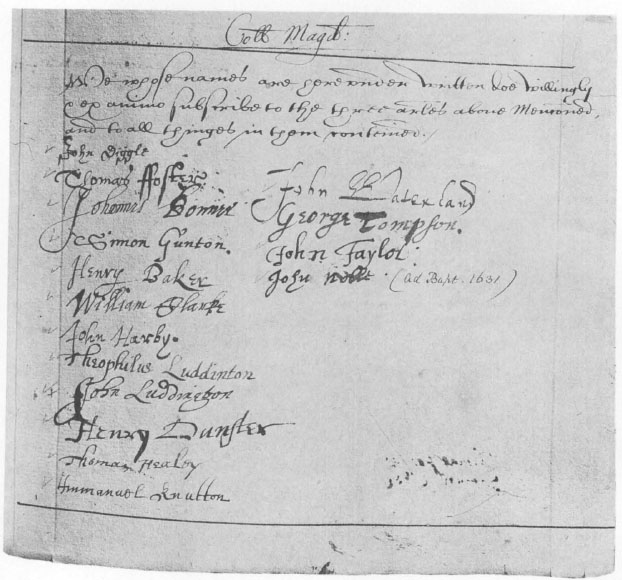 Coll Magd:
We whose names are hereunder written doe willingly
& ex animo subscribe to the three arles above mencioned,
and to all thinges in them conteined.
John Diggle
Thomas ffoster
Johannes
Simon Gunton.
Henry Baker
William Clarke
John Harby.
Theophilus Luddinton
John Luddington
Henry Dunster
Thomas Healey
Immanuel Knutton
John Waterland
George Tompson.
John Taylor
John Noble (ad Bapt. 1631)